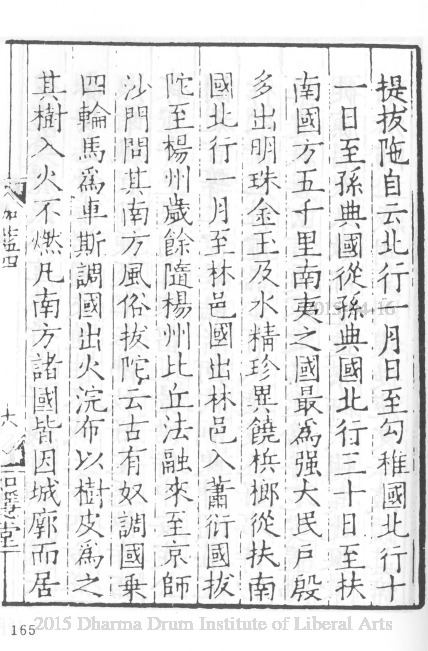 提拔陁自云北行一月日至勾稚國北行十
一日至孫典國從孫典國北行三十日至扶
南國方五千里南夷之國最爲强大民戶殷
多出明珠金玉及水精珍異饒梹榔從扶南
國北行一月至林邑國出林邑入蕭衍國拔
陀至楊州歲餘隨楊州比丘法融來至京師
沙門問其南方風俗拔陀云古有奴調國乗
四輪馬爲車斯調國出火浣布以樹皮爲之
其樹入火不燃凡南方諸國皆因城廓而居
六
165
2015 Dharma Drum Institute of Liberal Arts